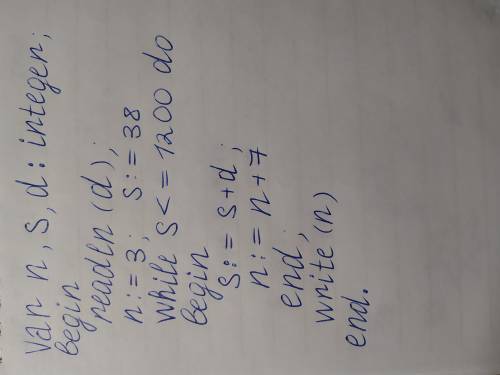 Var n, s, d: integer;
begin
readln (d);
n:= 3; s:= 38
while s <= 1200 do
begin
s:= s+d;
n:= n+7
end;
write (n)
end.